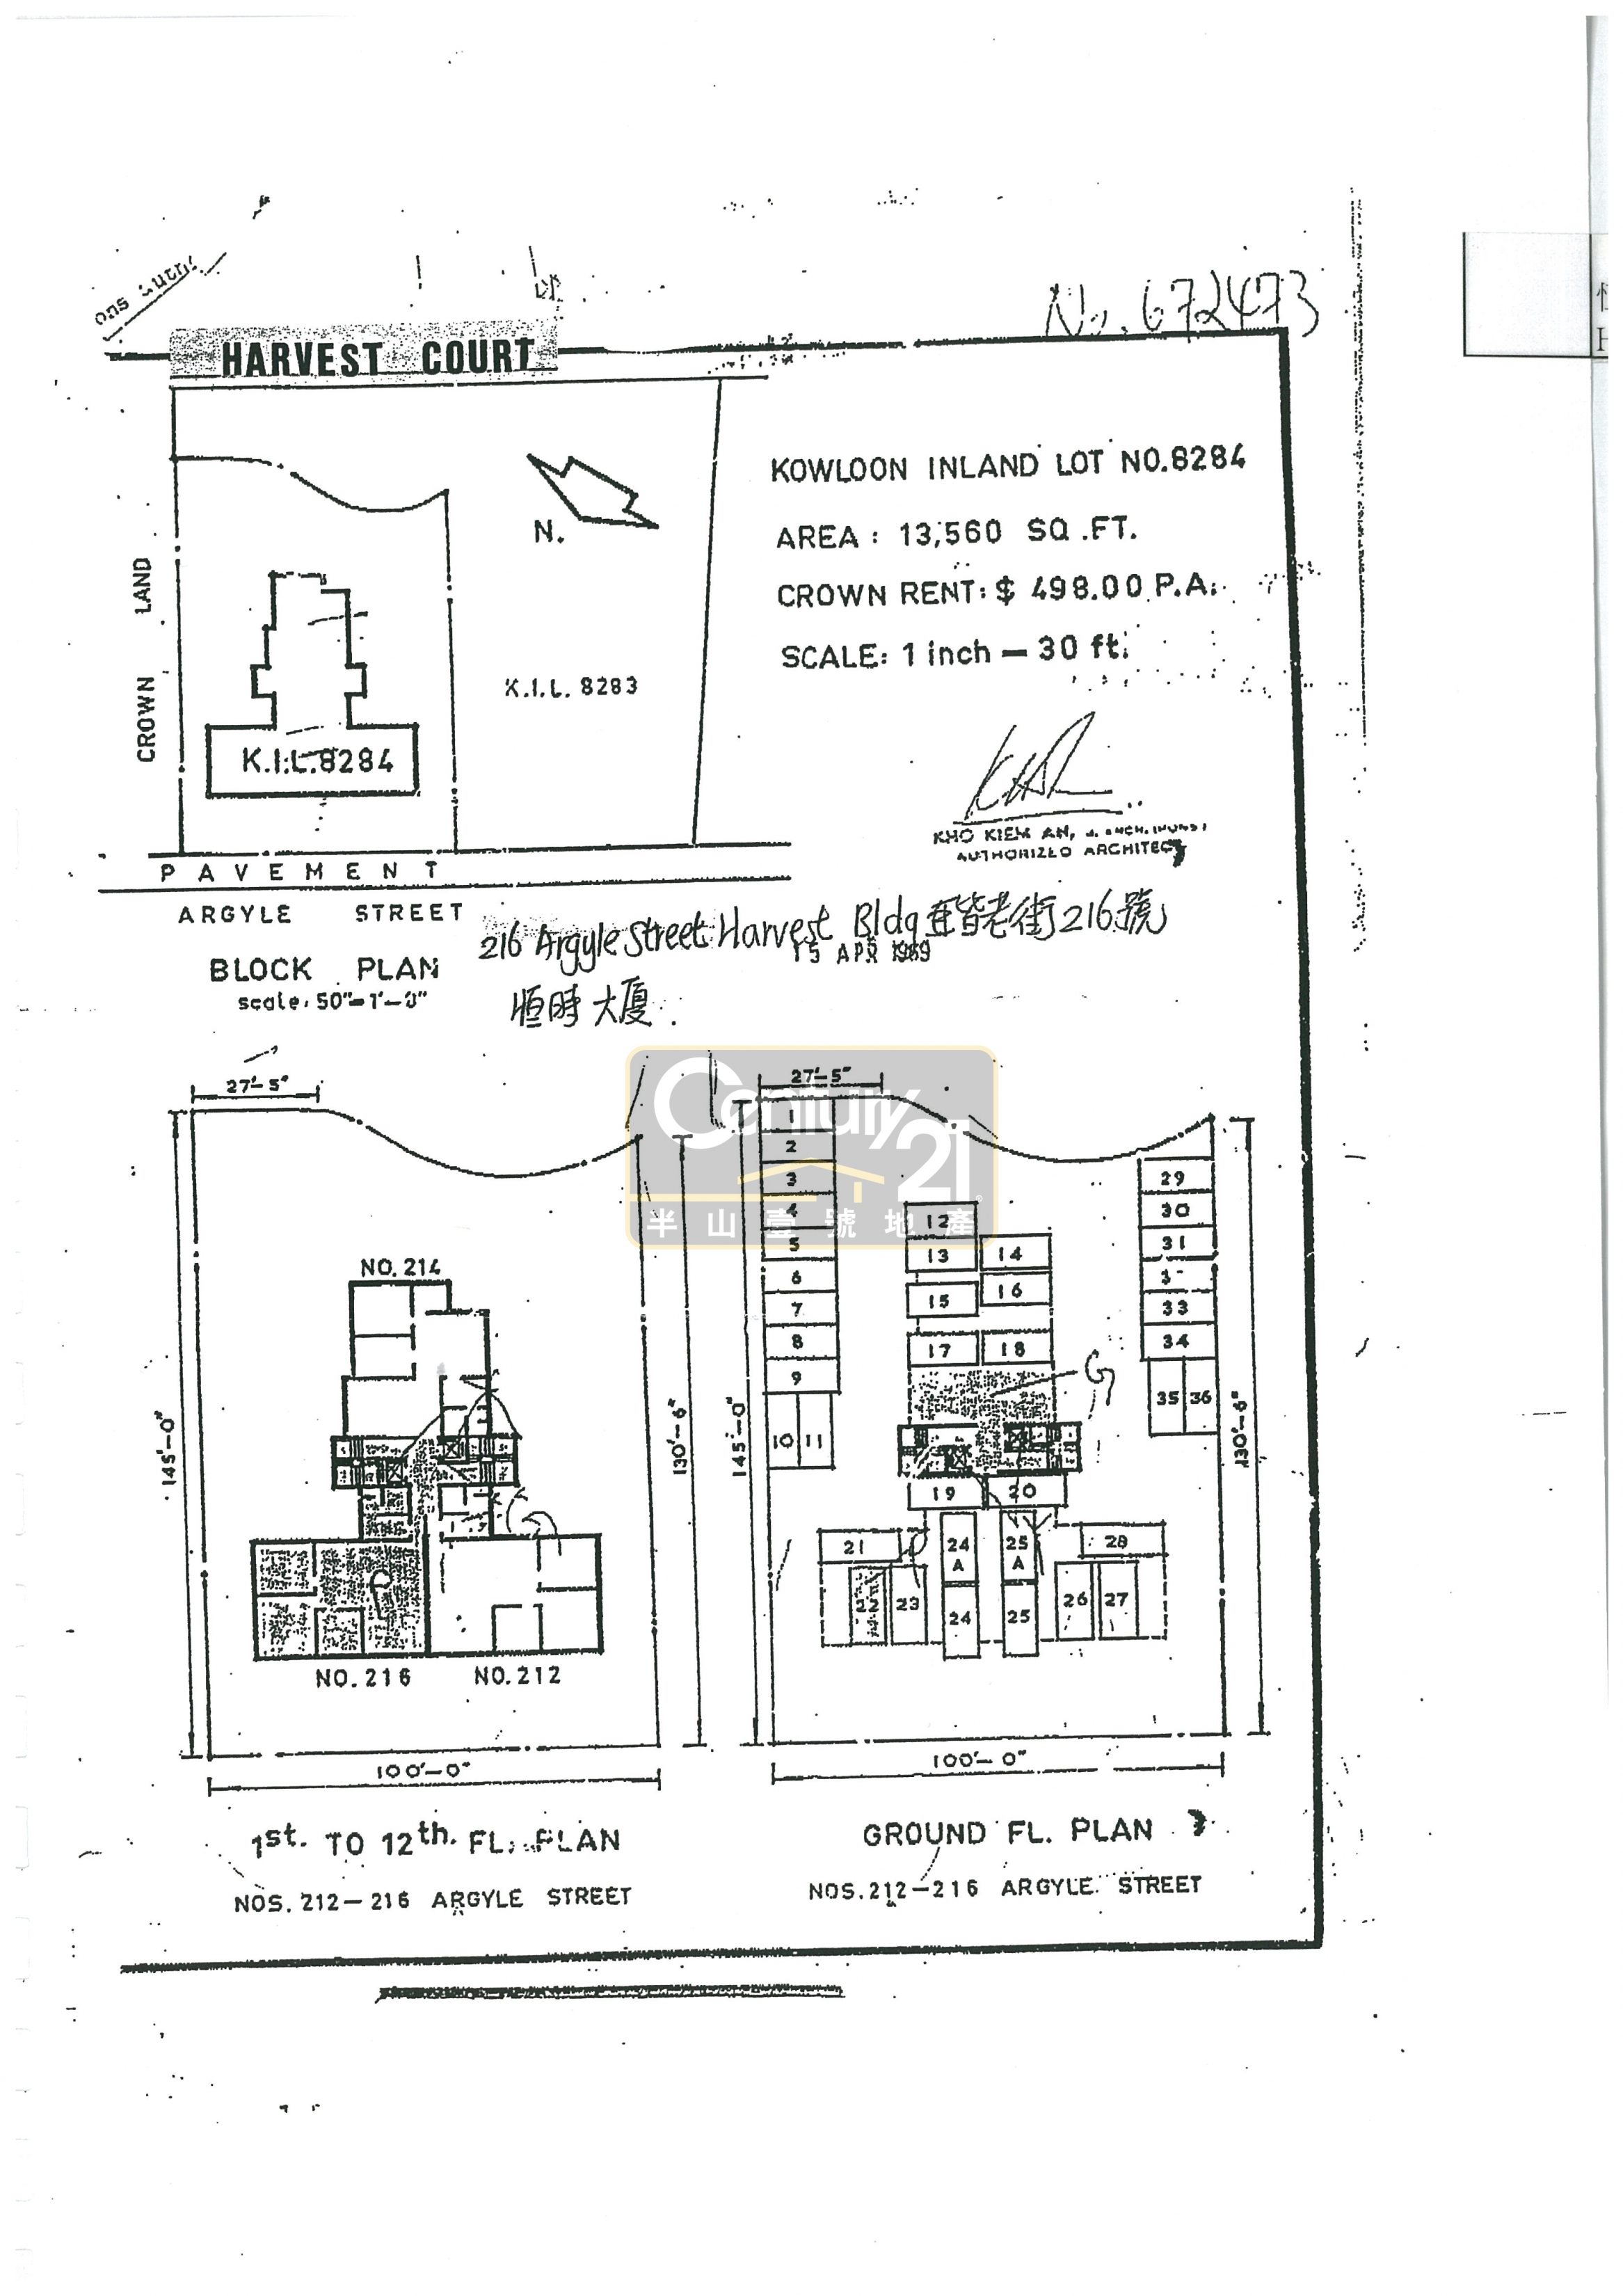 No. 672473
HARVEST COURT
N.
CROWN LAND
K.I.L. 8283
K.I.L. 8284
PAVEMENT
ARGYLE STREET
BLOCK PLAN
scale: 50"=1'-0"
KOWLOON INLAND LOT NO.8284
AREA : 13,560 SQ.FT.
CROWN RENT: $ 498.00 P.A.
SCALE: 1 inch — 30 ft.
KHO KIEM AN,
AUTHORIZED ARCHITECT
216 Argyle Street Harvest Bldg 亞皆老街216號
15 APR 1969
恒時大廈
Century 21
半山壹號地產
27'-5"
145'-0"
130'-6"
NO. 214
NO. 216
NO. 212
100'-0"
1st. TO 12th. FL. PLAN
NOS. 212-216 ARGYLE STREET
27'-5"
145'-0"
130'-6"
1
2
3
4
5
6
7
8
9
10 11
12
13 14
15 16
17 18
G
19 20
21
22 23
24A
24
25A
25
26 27
28
29
30
31
33
34
35 36
100'-0"
GROUND FL. PLAN
NOS. 212-216 ARGYLE STREET